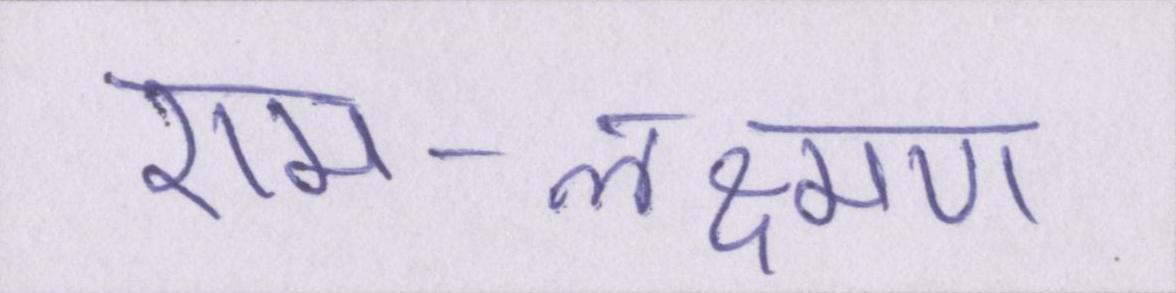 राम-लक्ष्मण